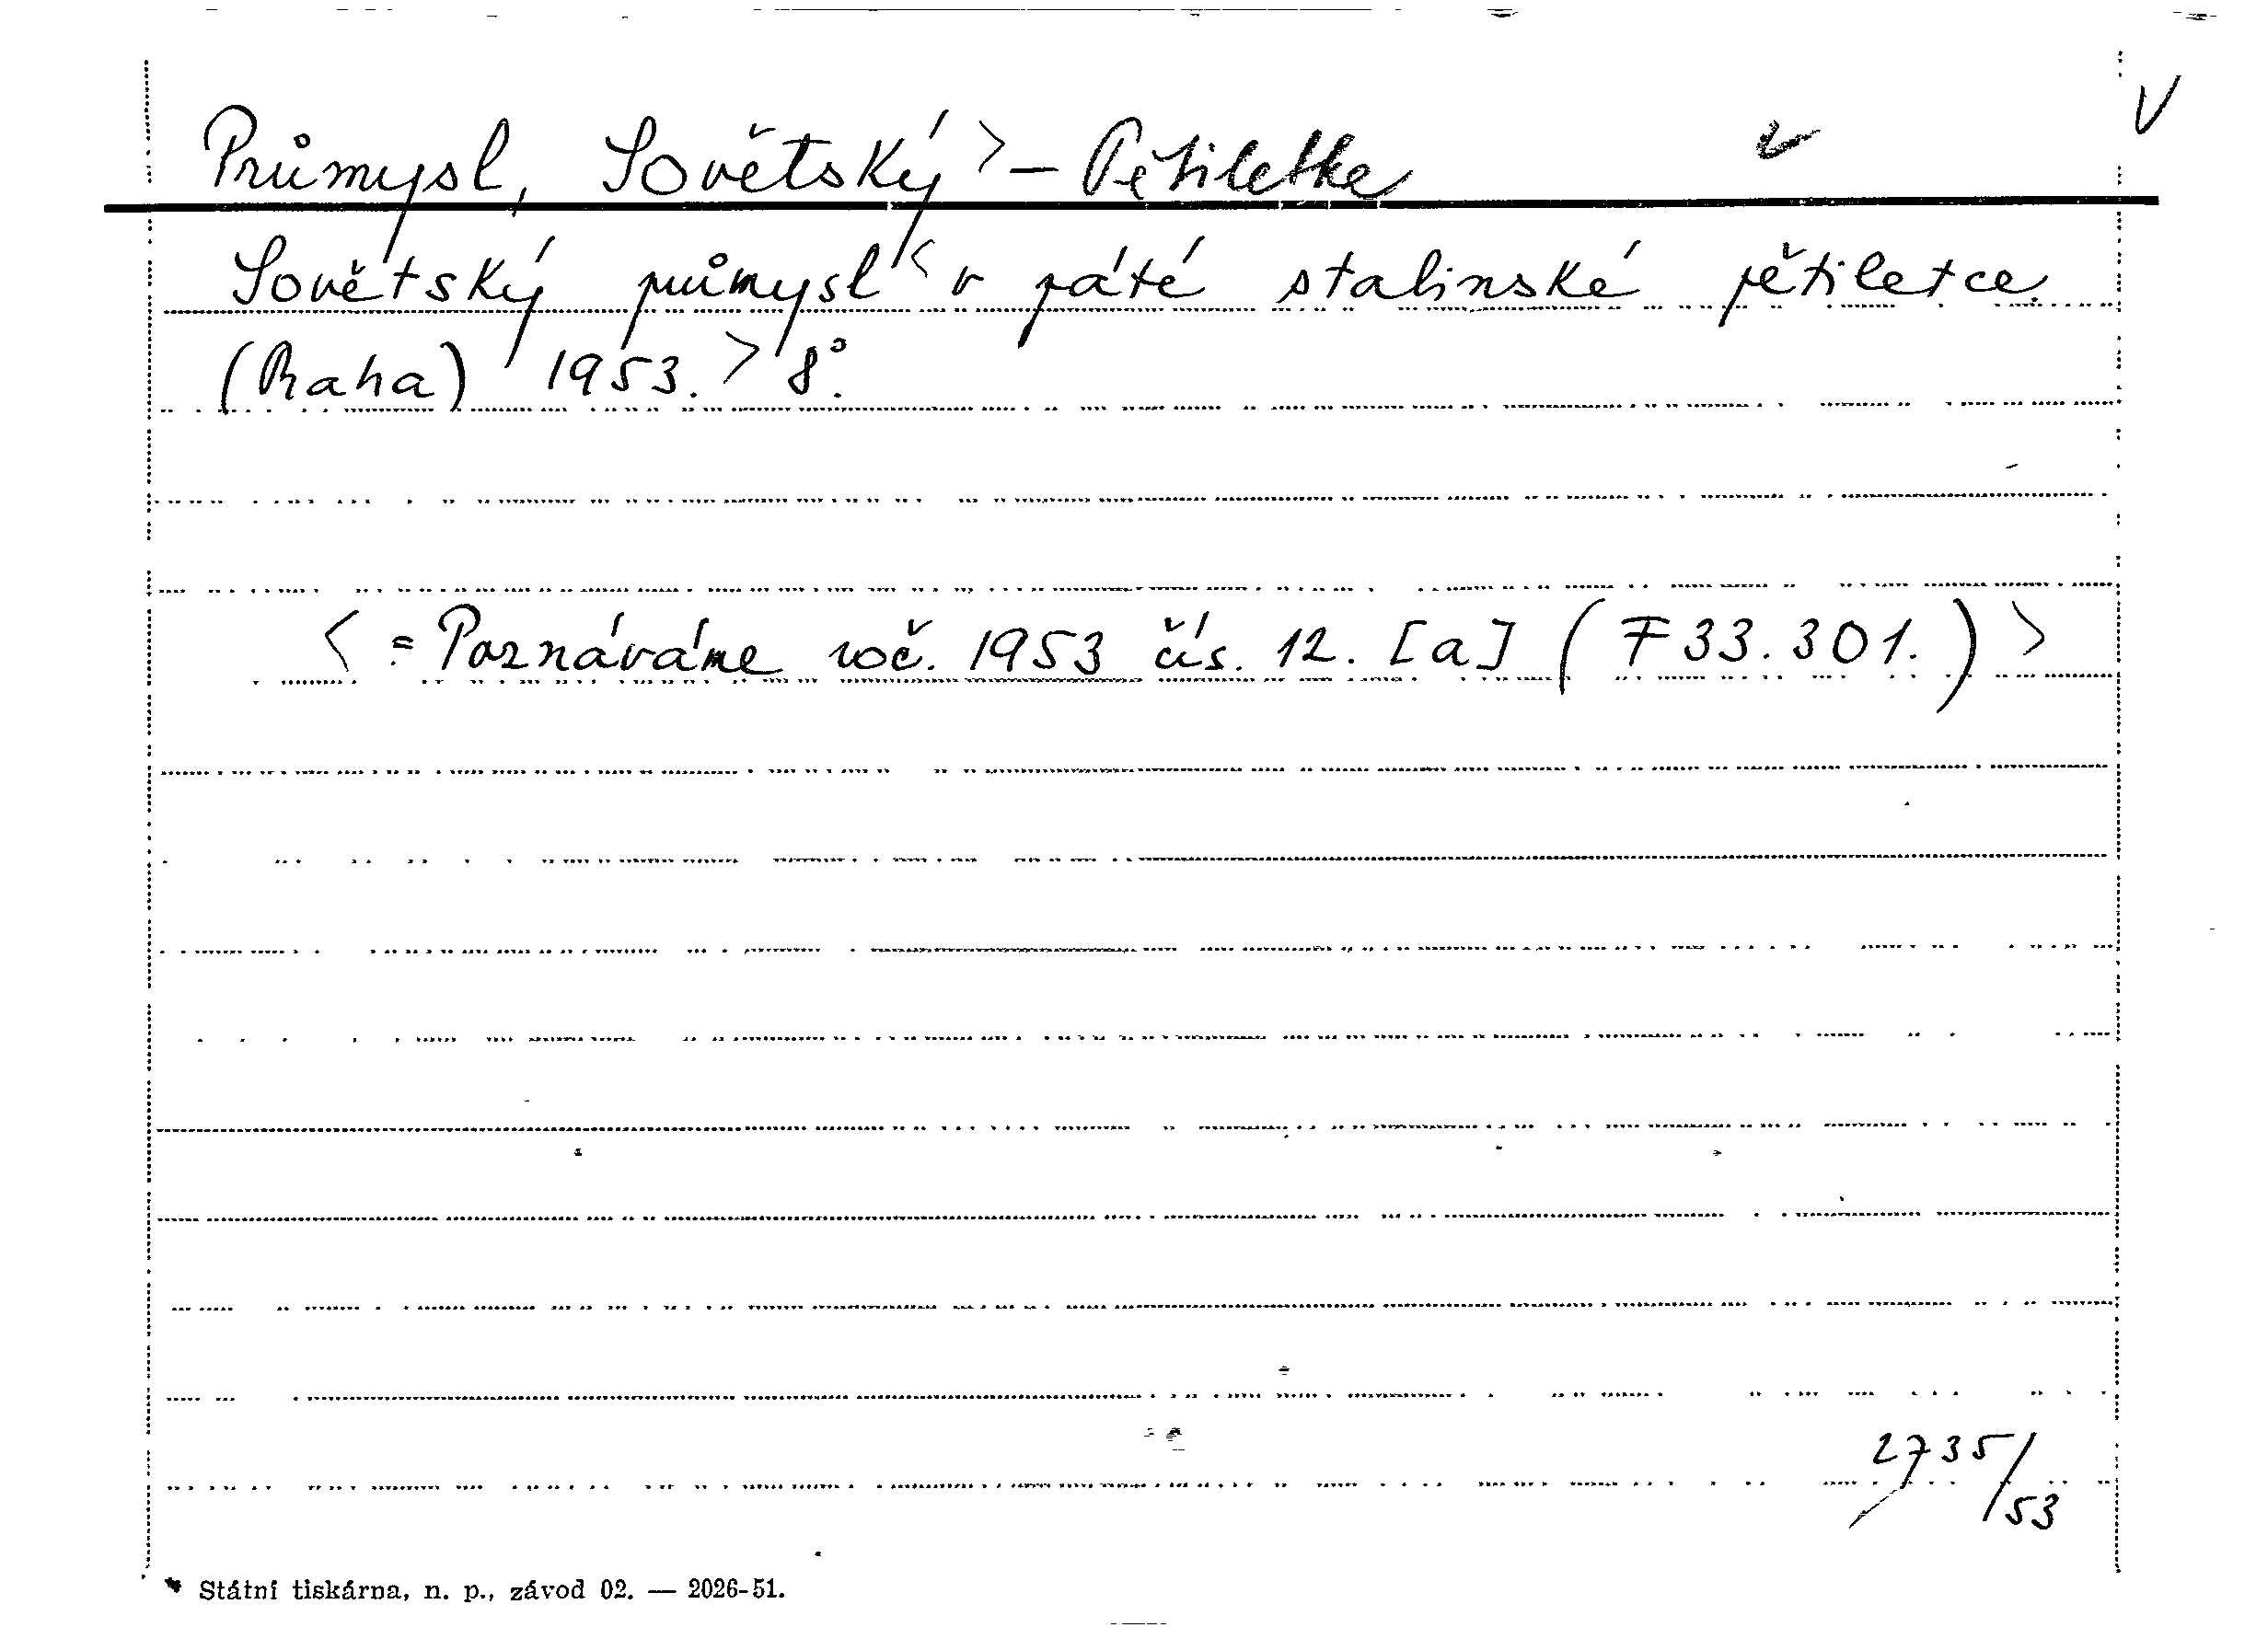 Průmysl, Sovětský > – Pětiletka
Sovětský průmysl < v páté stalinské pětiletce.
(Praha) 1953. > 8°.
< = Poznáváme roč. 1953 čís. 12. [a] (F 33.301.) >
2735/53
Státní tiskárna, n. p., závod 02. — 2026-51.